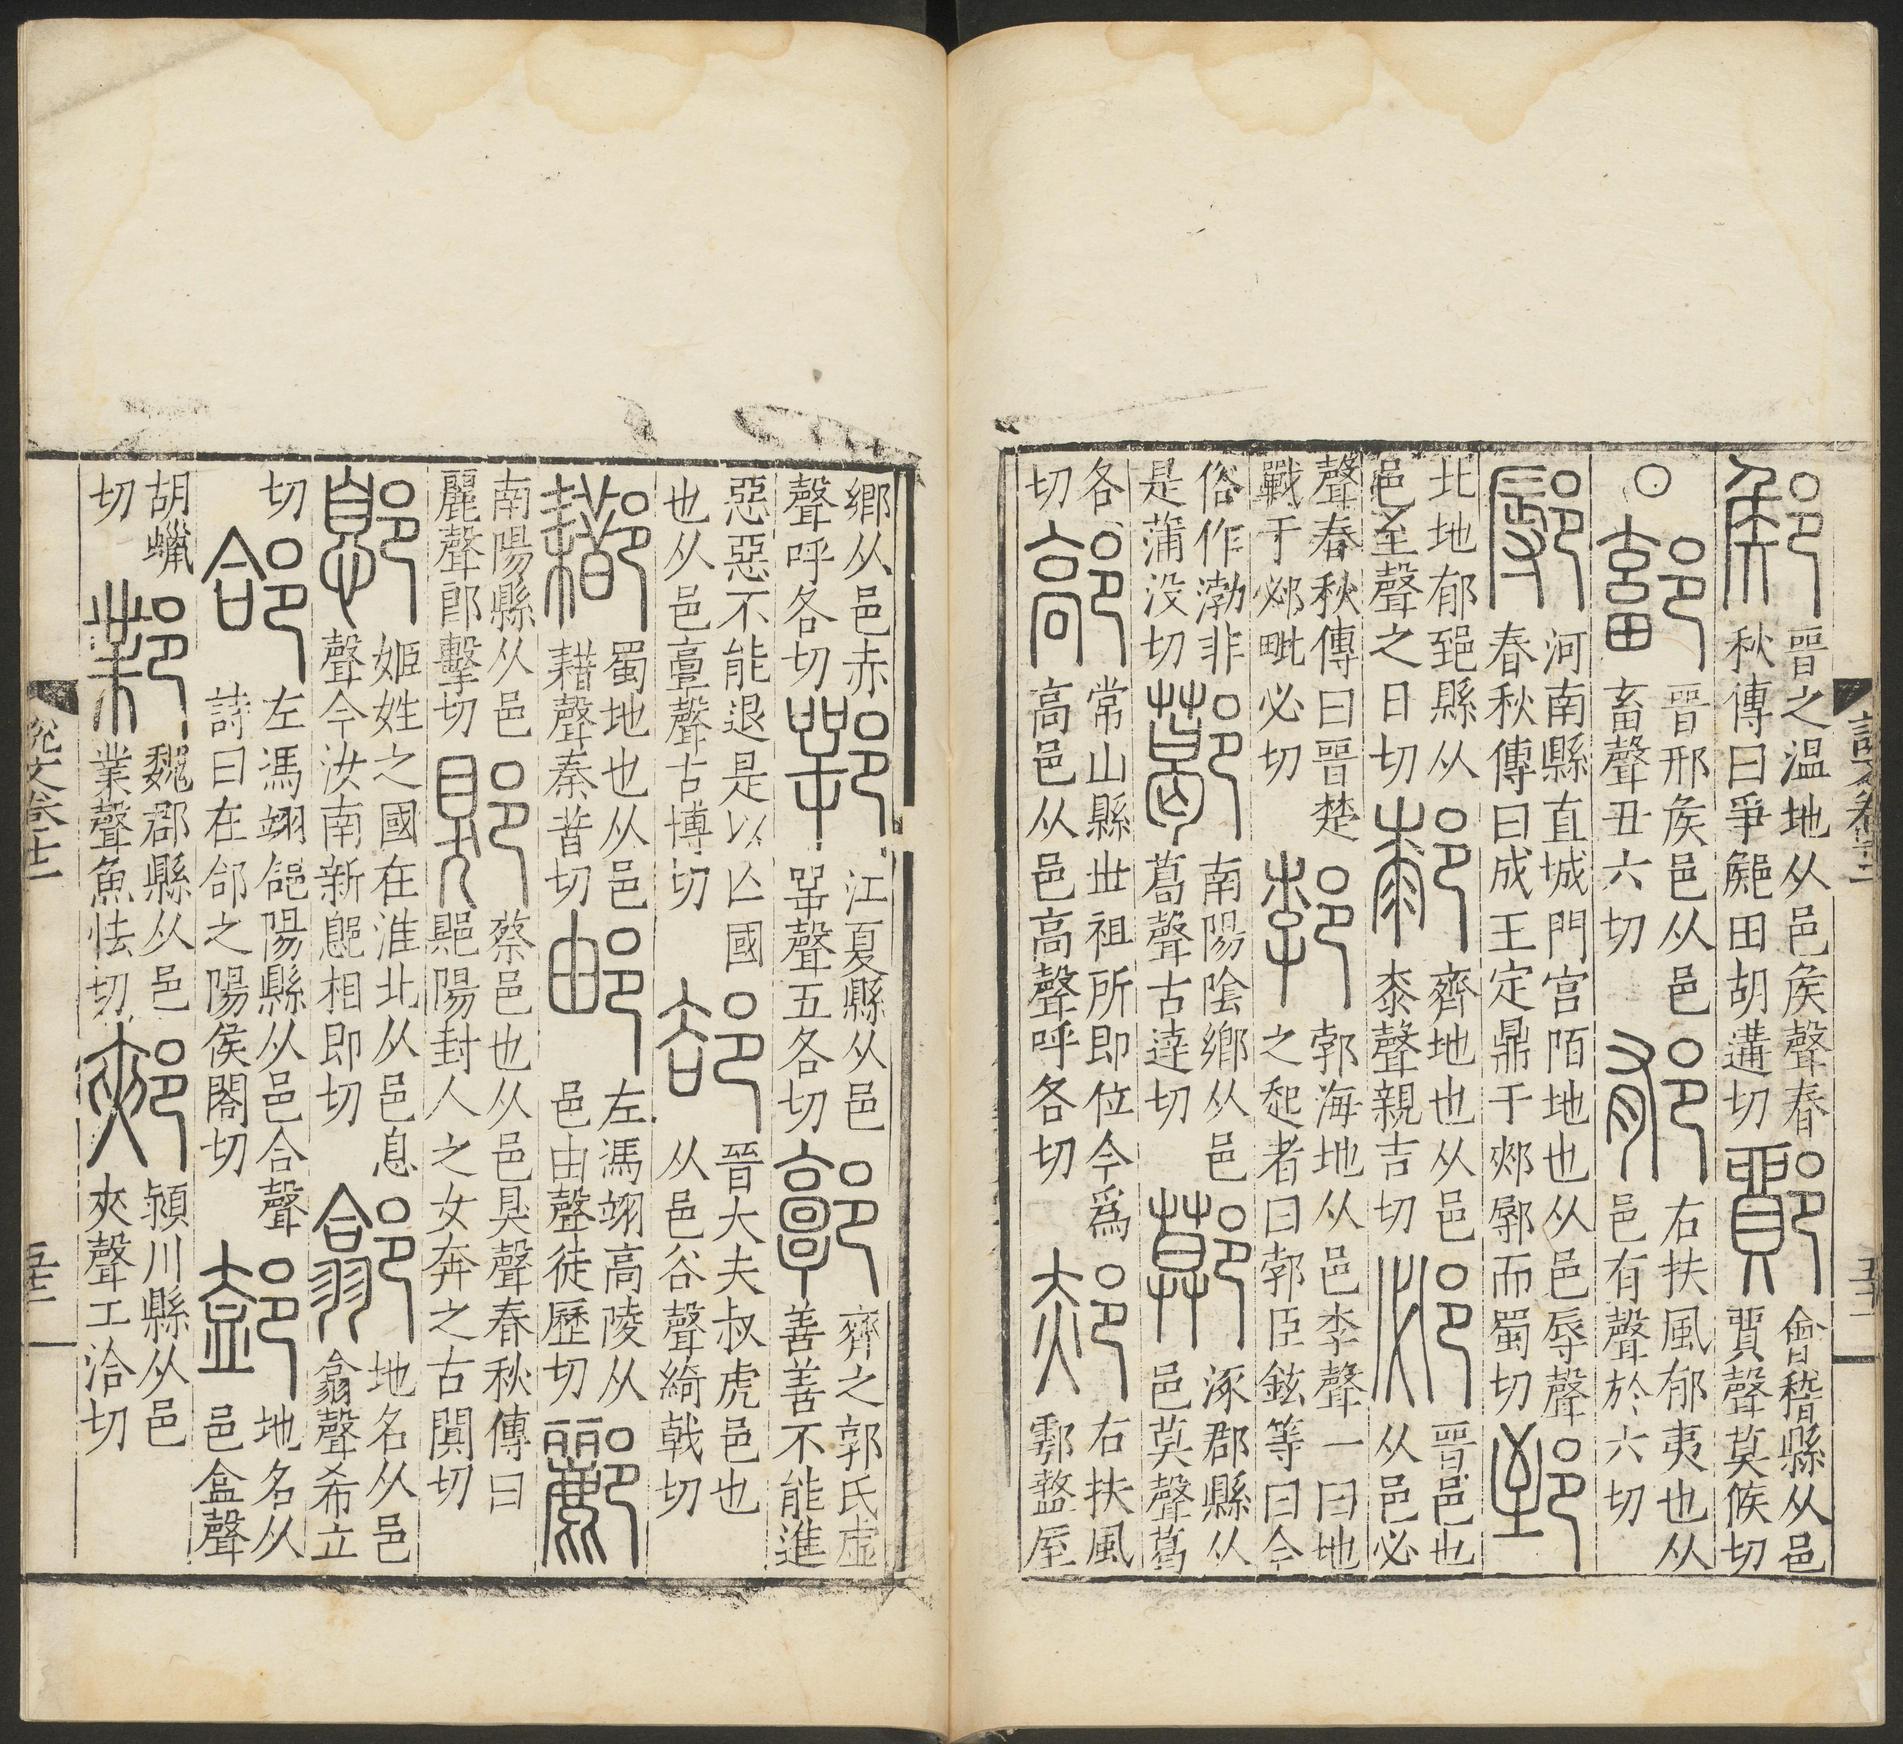 說文卷十二
鄇晉之温地从邑矦聲春秋傳曰爭鄇田胡遘切鄮會稽縣从邑貿聲莫候切
○鄐晉邢矦邑从邑畜聲丑六切郁右扶風郁夷也从邑有聲於六切
鄏河南縣直城門宫陌地也从邑辱聲春秋傳曰成王定鼎于郟鄏而蜀切郅
北地郁郅縣从邑至聲之日切齊地也从邑桼聲親吉切邲晉邑也从邑必
聲春秋傳曰晉楚戰于邲毗必切郣郭海地从邑孛聲一曰地之起者曰郣臣鉉等曰今
俗作渤非是蒲没切南陽陰鄉从邑葛聲古達切鄚涿郡縣从邑莫聲
各切鄗常山縣世祖所即位今爲高邑从邑高聲呼各切郝右扶風鄠盩厔
鄉从邑赤聲呼各切鄂江夏縣从邑咢聲五各切郭齊之郭氏虚善善不能進
惡惡不能退是以亡國也从邑𩫏聲古博切郤晉大夫叔虎邑也从邑谷聲綺戟切
蜀地也从邑耤聲秦昔切邮左馮翊高陵从邑由聲徒歷切酈
南陽縣从邑麗聲郎擊切郹蔡邑也从邑狊聲春秋傳曰郹陽封人之女奔之古闃切
鄎姬姓之國在淮北从邑息聲今汝南新鄎相即切地名从邑翕聲希立
切郃左馮翊郃陽縣从邑合聲詩曰在郃之陽侯閤切地名从邑盇聲
胡蠟切鄴魏郡縣从邑業聲魚怯切郟潁川縣从邑夾聲工洽切
說文卷十二